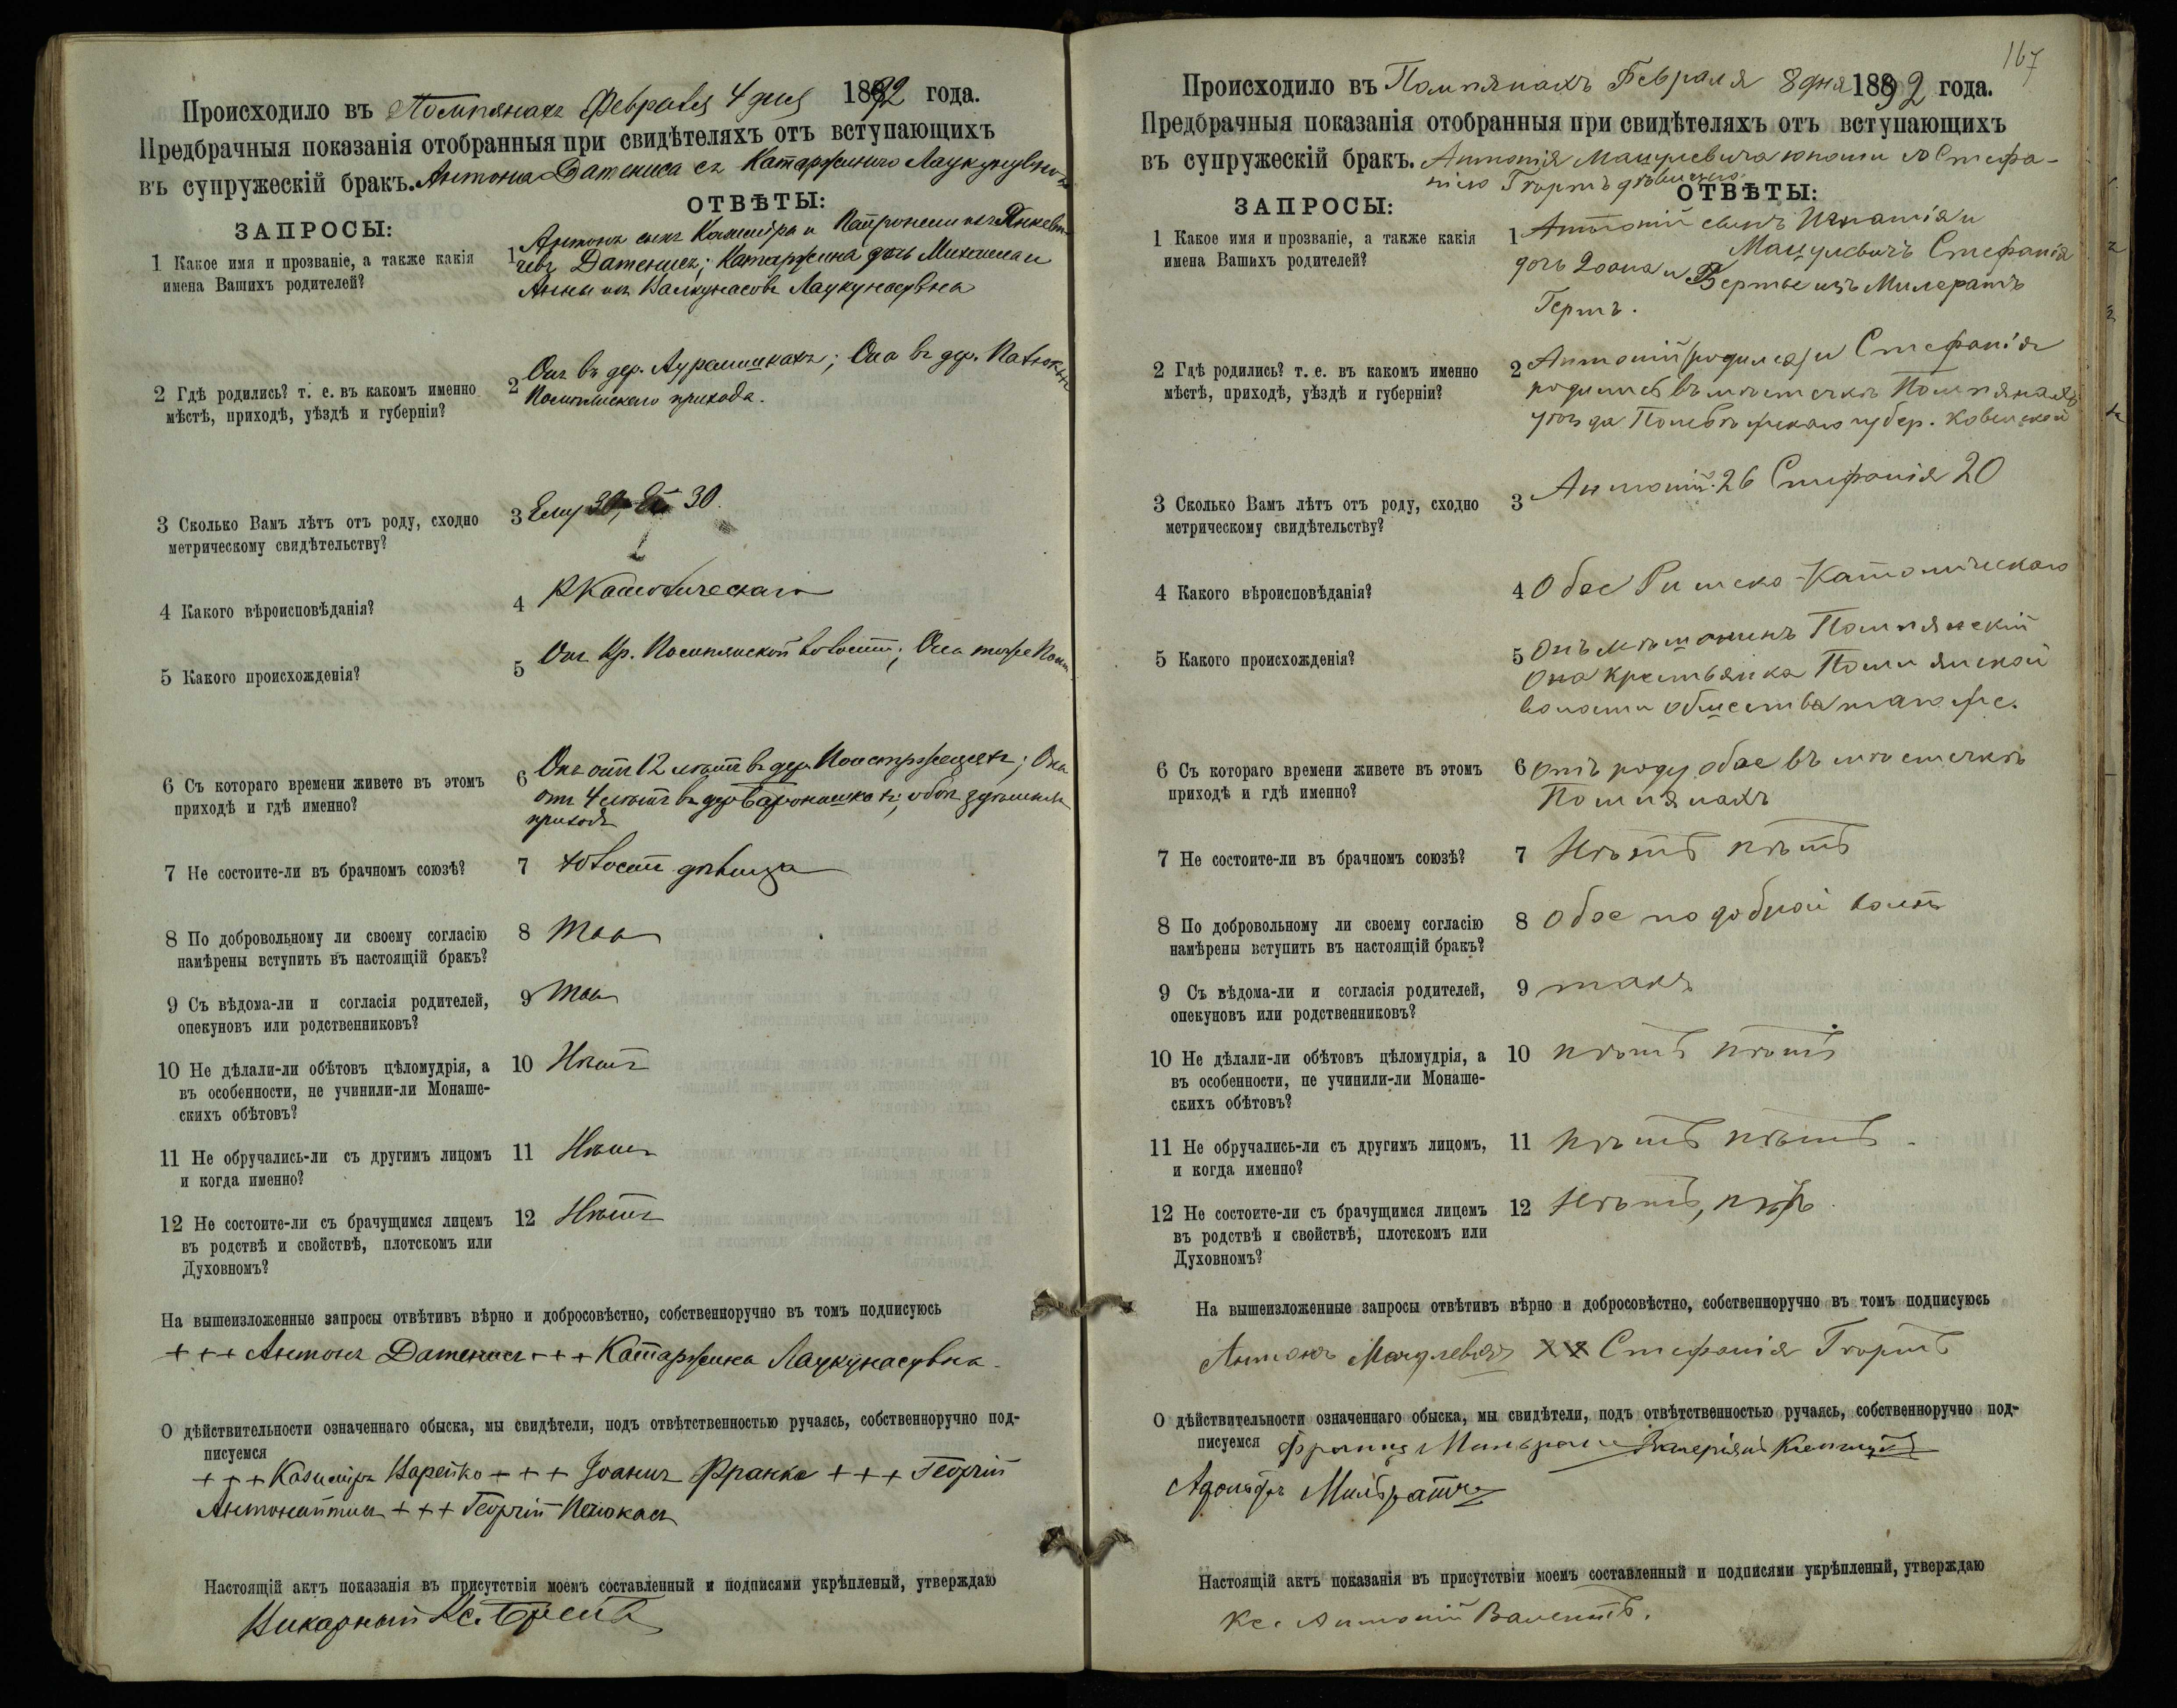 Происходило въ Помпянахъ Февраля 4 дня 1892 года.
Предбрачныя показанія отобранныя при свидѣтеляхъ отъ вступающихъ
въ супружескій бракъ. Антона Датениса съ Катаржиною
ЗАПРОСЫ:
ОТВѢТЫ:
1 Какое имя и прозваніе, а также какія
имена Вашихъ родителей?
1 Антонъ сынъ Казиміра и Петронели изъ
Датенисъ; Катаржина дочь Михаила и
Анны изъ Лаукунасувна
2 Гдѣ родились? т. е. въ какомъ именно
мѣстѣ, приходѣ, уѣздѣ и губерніи?
2 Онъ въ дер. ; Она въ дер.
Помпянскаго прихода.
3 Сколько Вамъ лѣтъ отъ роду, сходно
метрическому свидѣтельству?
3 Ему 30, Ей 30.
4 Какого вѣроисповѣданія?
4 Р Католическаго
5 Какого происхожденія?
5 Онъ Кр. Помпянской волости; Она тоже
6 Съ котораго времени живете въ этомъ
приходѣ и гдѣ именно?
6 Онъ отъ 12 лѣтъ въ дер. ; Она
отъ 4 лѣтъ въ дер.
прихода
7 Не состоите-ли въ брачномъ союзѣ?
7 холост дѣвица
8 По добровольному ли своему согласію
намѣрены вступить въ настоящій бракъ?
8
9 Съ вѣдома-ли и согласія родителей,
опекуновъ или родственниковъ?
9
10 Не дѣлали-ли обѣтовъ цѣломудрія, а
въ особенности, не учинили-ли Монаше-
скихъ обѣтовъ?
10 Нѣтъ
11 Не обручались-ли съ другимъ лицомъ
и когда именно?
11 Нѣтъ
12 Не состоите-ли съ брачущимся лицемъ
въ родствѣ и свойствѣ, плотскомъ или
Духовномъ?
12 Нѣтъ
На вышеизложенные запросы отвѣтивъ вѣрно и добросовѣстно, собственноручно въ томъ подписуюсь
+ + + Антонъ Датенисъ + + + Катаржина Лаукунасувна
О дѣйствительности означеннаго обыска, мы свидѣтели, подъ отвѣтственностью ручаясь, собственноручно под-
писуемся
+ + + Казиміръ + + + Іоаннъ Франка + + + Георгій
+ + + Георгій
Настоящій актъ показанія въ присутствіи моемъ составленный и подписями укрѣпленый, утверждаю
Викарный Кс.
167
Происходило въ Помпянахъ Февраля 8 дня 1892 года.
Предбрачныя показанія отобранныя при свидѣтеляхъ отъ вступающихъ
въ супружескій бракъ. Антонія Мацулевича юноши со Стефа-
ніею дѣвицею
ЗАПРОСЫ:
ОТВѢТЫ:
1 Какое имя и прозваніе, а также какія
имена Вашихъ родителей?
1 Антоній сынъ Игнатія и
Мацулевичъ Стефанія
дочь Іоана и Берты изъ Милератъ
Гертъ.
2 Гдѣ родились? т. е. въ какомъ именно
мѣстѣ, приходѣ, уѣздѣ и губерніи?
2 Антоній (родился) и Стефанія
родились въ мѣстечкѣ Помпянахъ
уѣзда Поневѣжскаго губер. Ковенской
3 Сколько Вамъ лѣтъ отъ роду, сходно
метрическому свидѣтельству?
3 Антоній 26 Стефанія 20
4 Какого вѣроисповѣданія?
4 Обое Римско-Католическаго
5 Какого происхожденія?
5 Онъ мѣщанинъ Помпянскій
Она крестьянка Помпянской
волости общества того же.
6 Съ котораго времени живете въ этомъ
приходѣ и гдѣ именно?
6 Отъ роду обое въ мѣстечкѣ
Помпянахъ
7 Не состоите-ли въ брачномъ союзѣ?
7 Нѣтъ нѣтъ
8 По добровольному ли своему согласію
намѣрены вступить въ настоящій бракъ?
8 Обое по доброй волѣ
9 Съ вѣдома-ли и согласія родителей,
опекуновъ или родственниковъ?
9 такъ
10 Не дѣлали-ли обѣтовъ цѣломудрія, а
въ особенности, не учинили-ли Монаше-
скихъ обѣтовъ?
10 нѣтъ нѣтъ
11 Не обручались-ли съ другимъ лицомъ,
и когда именно?
11 нѣтъ нѣтъ
12 Не состоите-ли съ брачущимся лицемъ
въ родствѣ и свойствѣ, плотскомъ или
Духовномъ?
12 Нѣтъ, нѣтъ
На вышеизложенные запросы отвѣтивъ вѣрно и добросовѣстно, собственноручно въ томъ подписуюсь
Антонъ Мацулевичъ Стефанія
О дѣйствительности означеннаго обыска, мы свидѣтели, подъ отвѣтственностью ручаясь, собственноручно под-
писуемся Францъ
Адольфъ
Настоящій актъ показанія въ присутствіи моемъ составленный и подписями укрѣпленый, утверждаю
Кс. Антоній Валентъ.